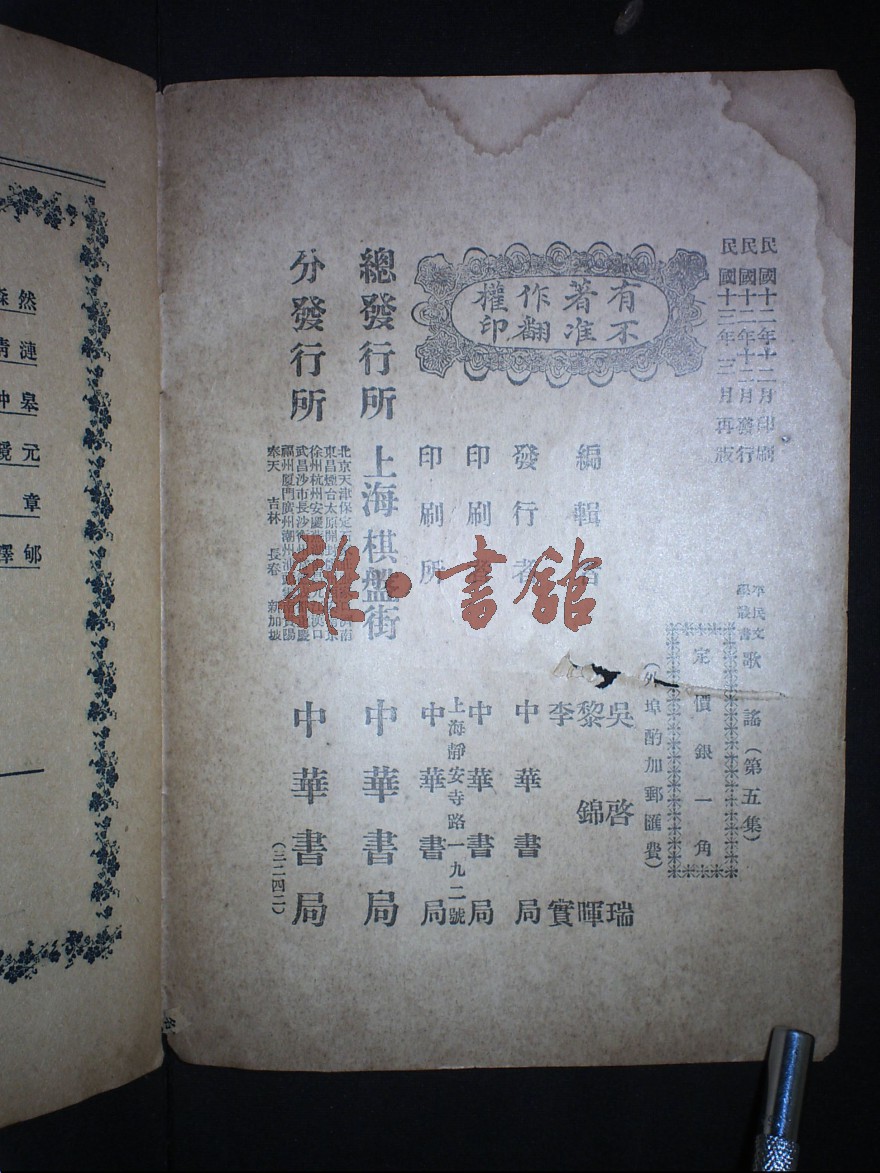 民國十二年十二月印刷
民國十二年十二月發行
民國十三年三月再版
平民文學叢書 歌謠（第五集）
定價銀一角
（外埠酌加郵匯費）
有著作權
不准翻印
編輯者
吳啓瑞
黎錦暉
李實
發行者 中華書局
印刷者 中華書局
上海靜安寺路一九二號
印刷所 中華書局
總發行所 上海棋盤街 中華書局
分發行所
北京天津保定
東昌煙台太原開封
徐州杭州安慶
武昌沙市長沙
福州廈門廣州潮州
奉天 吉林 長春 新加坡
中華書局
（三二四二）
雜·書館
然
漣
皋
元
章
郇